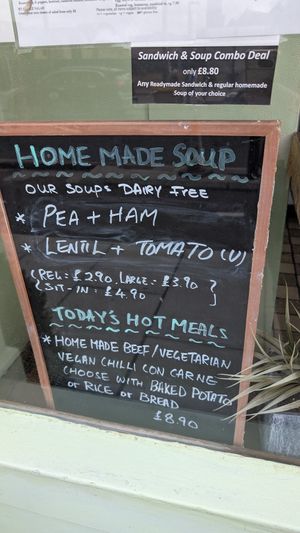 Sandwich & Soup Combo Deal
only £8.80
Any Readymade Sandwich & regular homemade
Soup of your choice
HOME MADE SOUP
OUR SOUPS DAIRY FREE
* PEA + HAM
* LENTIL + TOMATO (V)
(REG = £2.90, LARGE = £3.90)
(SIT-IN = £4.90)
TODAY'S HOT MEALS
* HOME MADE BEEF/VEGETARIAN
VEGAN CHILLI CON CARNE
CHOOSE WITH BAKED POTATO
or RICE or BREAD
£8.90